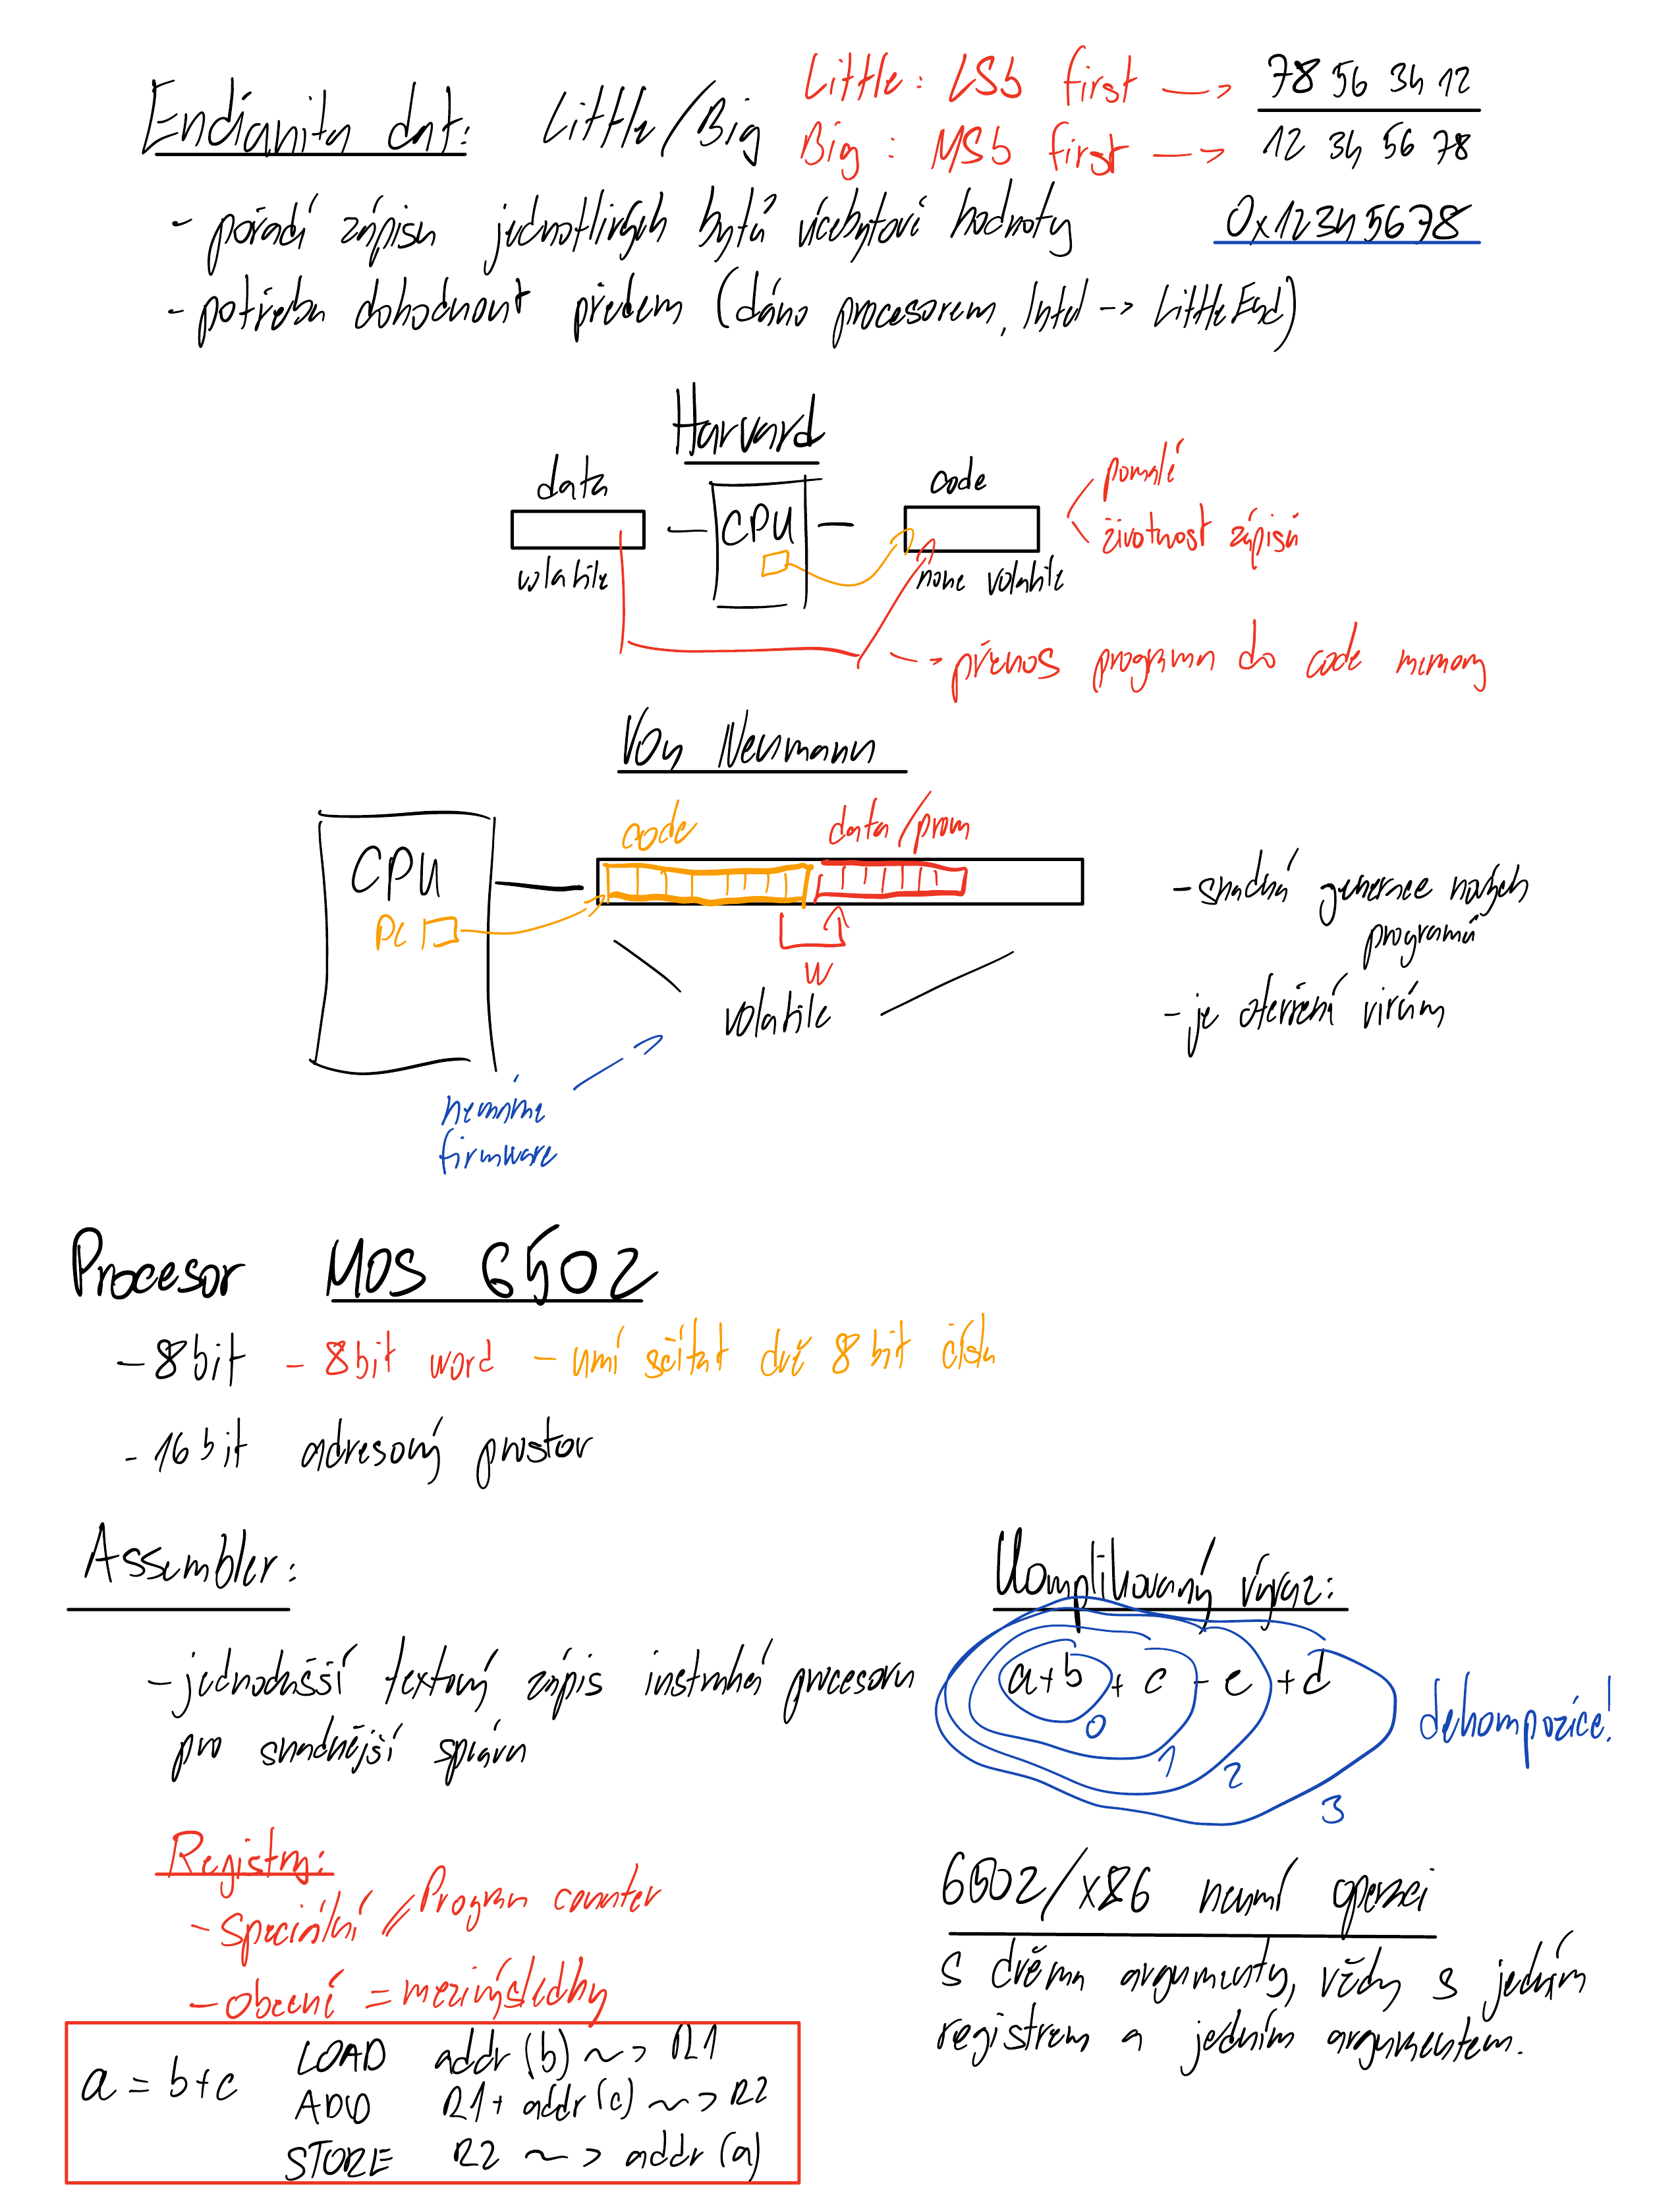 Endianita dat: Little/Big
Little: LSb first -> 78 56 34 12
Big: MSb first -> 12 34 56 78
- pořadí zápisu jednotlivých bytů vícebytové hodnoty 0x12345678
- potřeba dohodnout předem (dáno procesorem, Intel -> Little End)
Harvard
data CPU code
volatile none volatile
pomalé
životnost zápisů
-> přenos programu do code memory
Von Neumann
code data/prom
CPU
PC
W
volatile
nemáme
firmware
- snadná generace nových
programů
- je otevření virům
Procesor MOS 6502
- 8bit - 8bit word - umí sčítat dvě 8bit čísla
- 16bit adresový prostor
Assembler:
- jednodušší textový zápis instrukcí procesoru
pro snadnější správu
Komplikovaný výraz:
a+b + c - e + d
0 1 2 3
dekompozice!
Registry:
- speciální // Program counter
- obecné = mezivýsledky
a = b+c
LOAD addr(b) ~> R1
ADD R1 + addr(c) ~> R2
STORE R2 ~> addr(a)
6502/x86 neumí operaci
s dvěma argumenty, vždy s jedním
registrem a jedním argumentem.